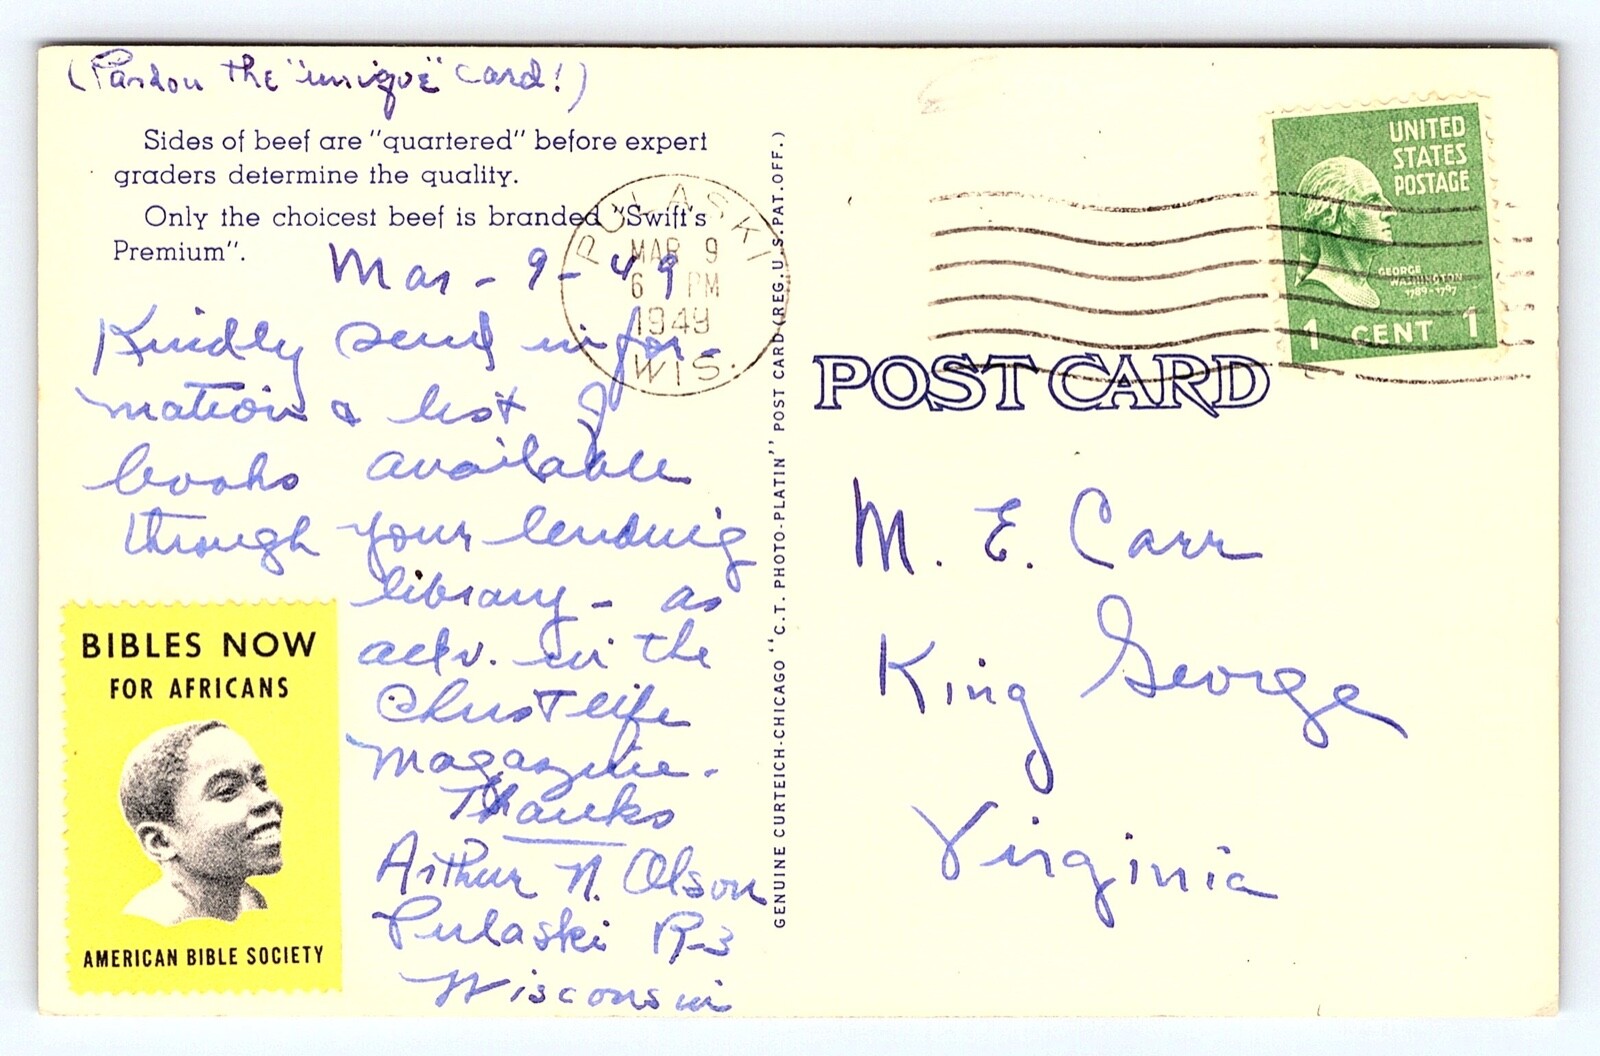 (Pardon the "unique" card!)
Sides of beef are "quartered" before expert
graders determine the quality.
Only the choicest beef is branded "Swift's
Premium".
Mar - 9 - 49
Kindly send infor-
mation & list of
books available
through your lending
library - as
adv. in the
Christ life
magazine.
Thanks
Arthur N. Olson
Pulaski R-3
Wisconsin
BIBLES NOW
FOR AFRICANS
AMERICAN BIBLE SOCIETY
PULASKI
MAR 9
6 PM
1949
WIS.
GENUINE CURTEICH-CHICAGO "C.T. PHOTO-PLATIN" POST CARD (REG. U.S. PAT. OFF.)
UNITED
STATES
POSTAGE
GEORGE
WASHINGTON
1789-1797
1 CENT 1
POST CARD
M. E. Carr
King George
Virginia